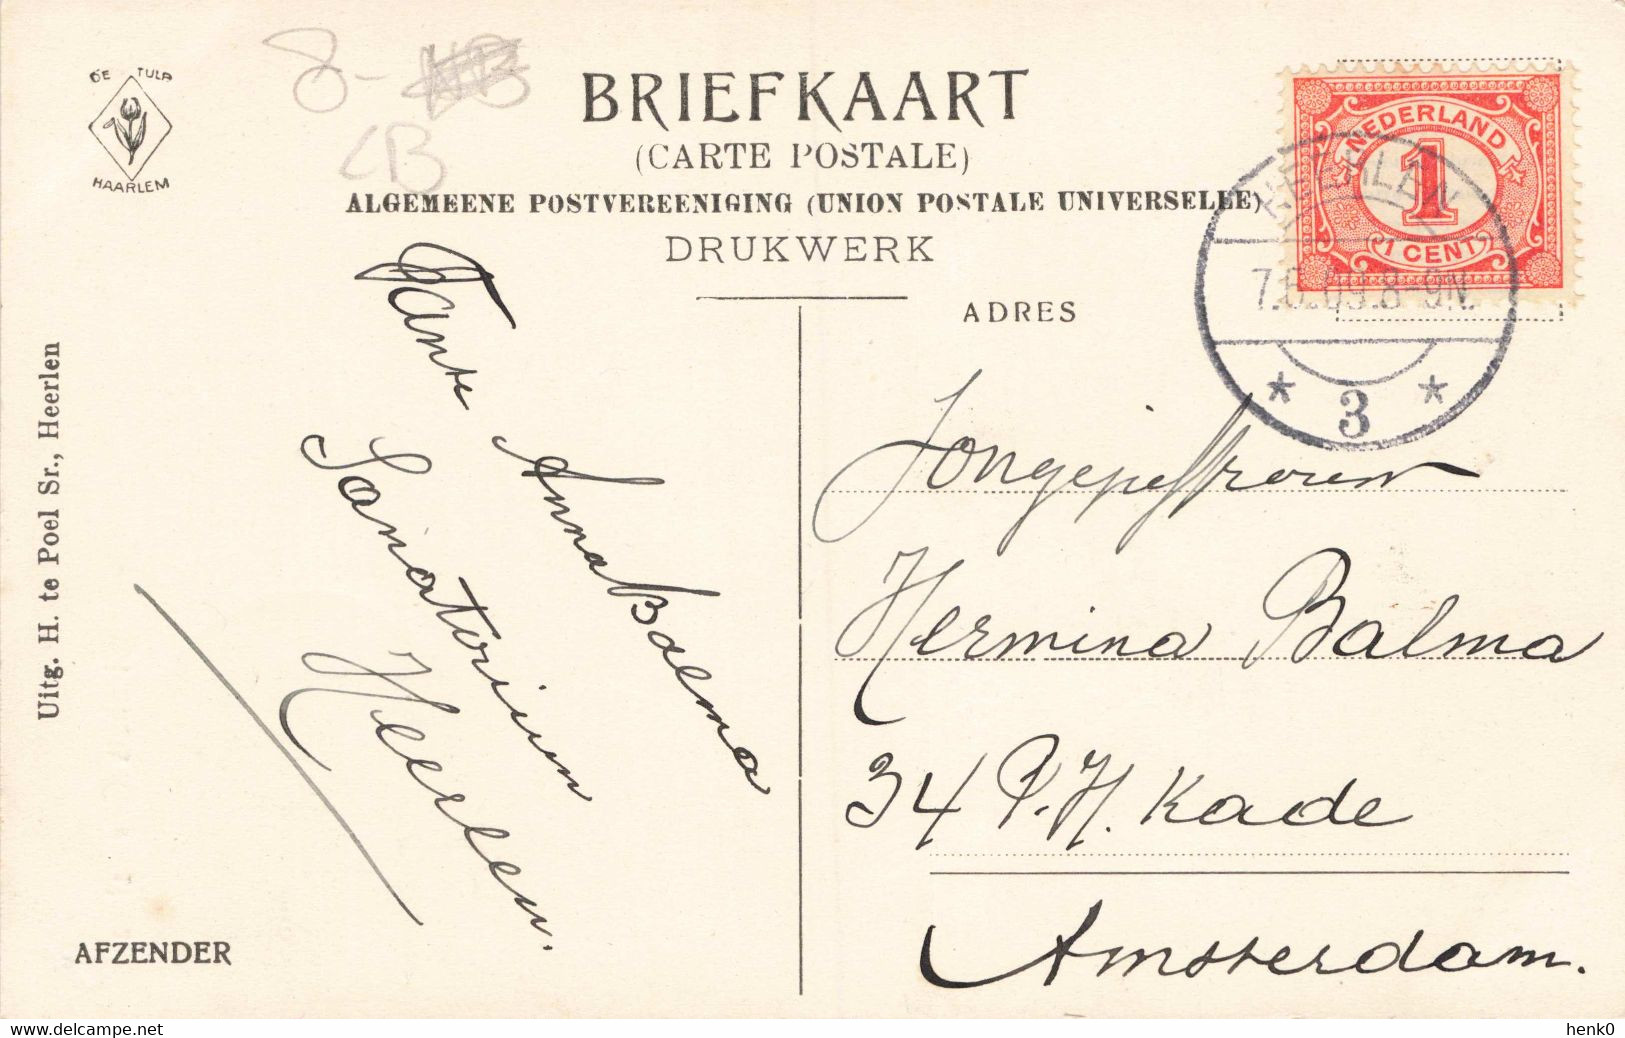 DE TULP
HAARLEM
8-
CB
BRIEFKAART
(CARTE POSTALE)
ALGEMEENE POSTVEREENIGING (UNION POSTALE UNIVERSELLE)
DRUKWERK
NEDERLAND
1
1 CENT
HEERLEN
7.6.09.8-9N.
3
ADRES
Tante
Anna Balma
Sanatorium
Heerlen.
Jongejuffrouw
Hermina Balma
34 P.H. Kade
Amsterdam.
Uitg. H. te Poel Sr., Heerlen
AFZENDER
www.delcampe.net
henk0